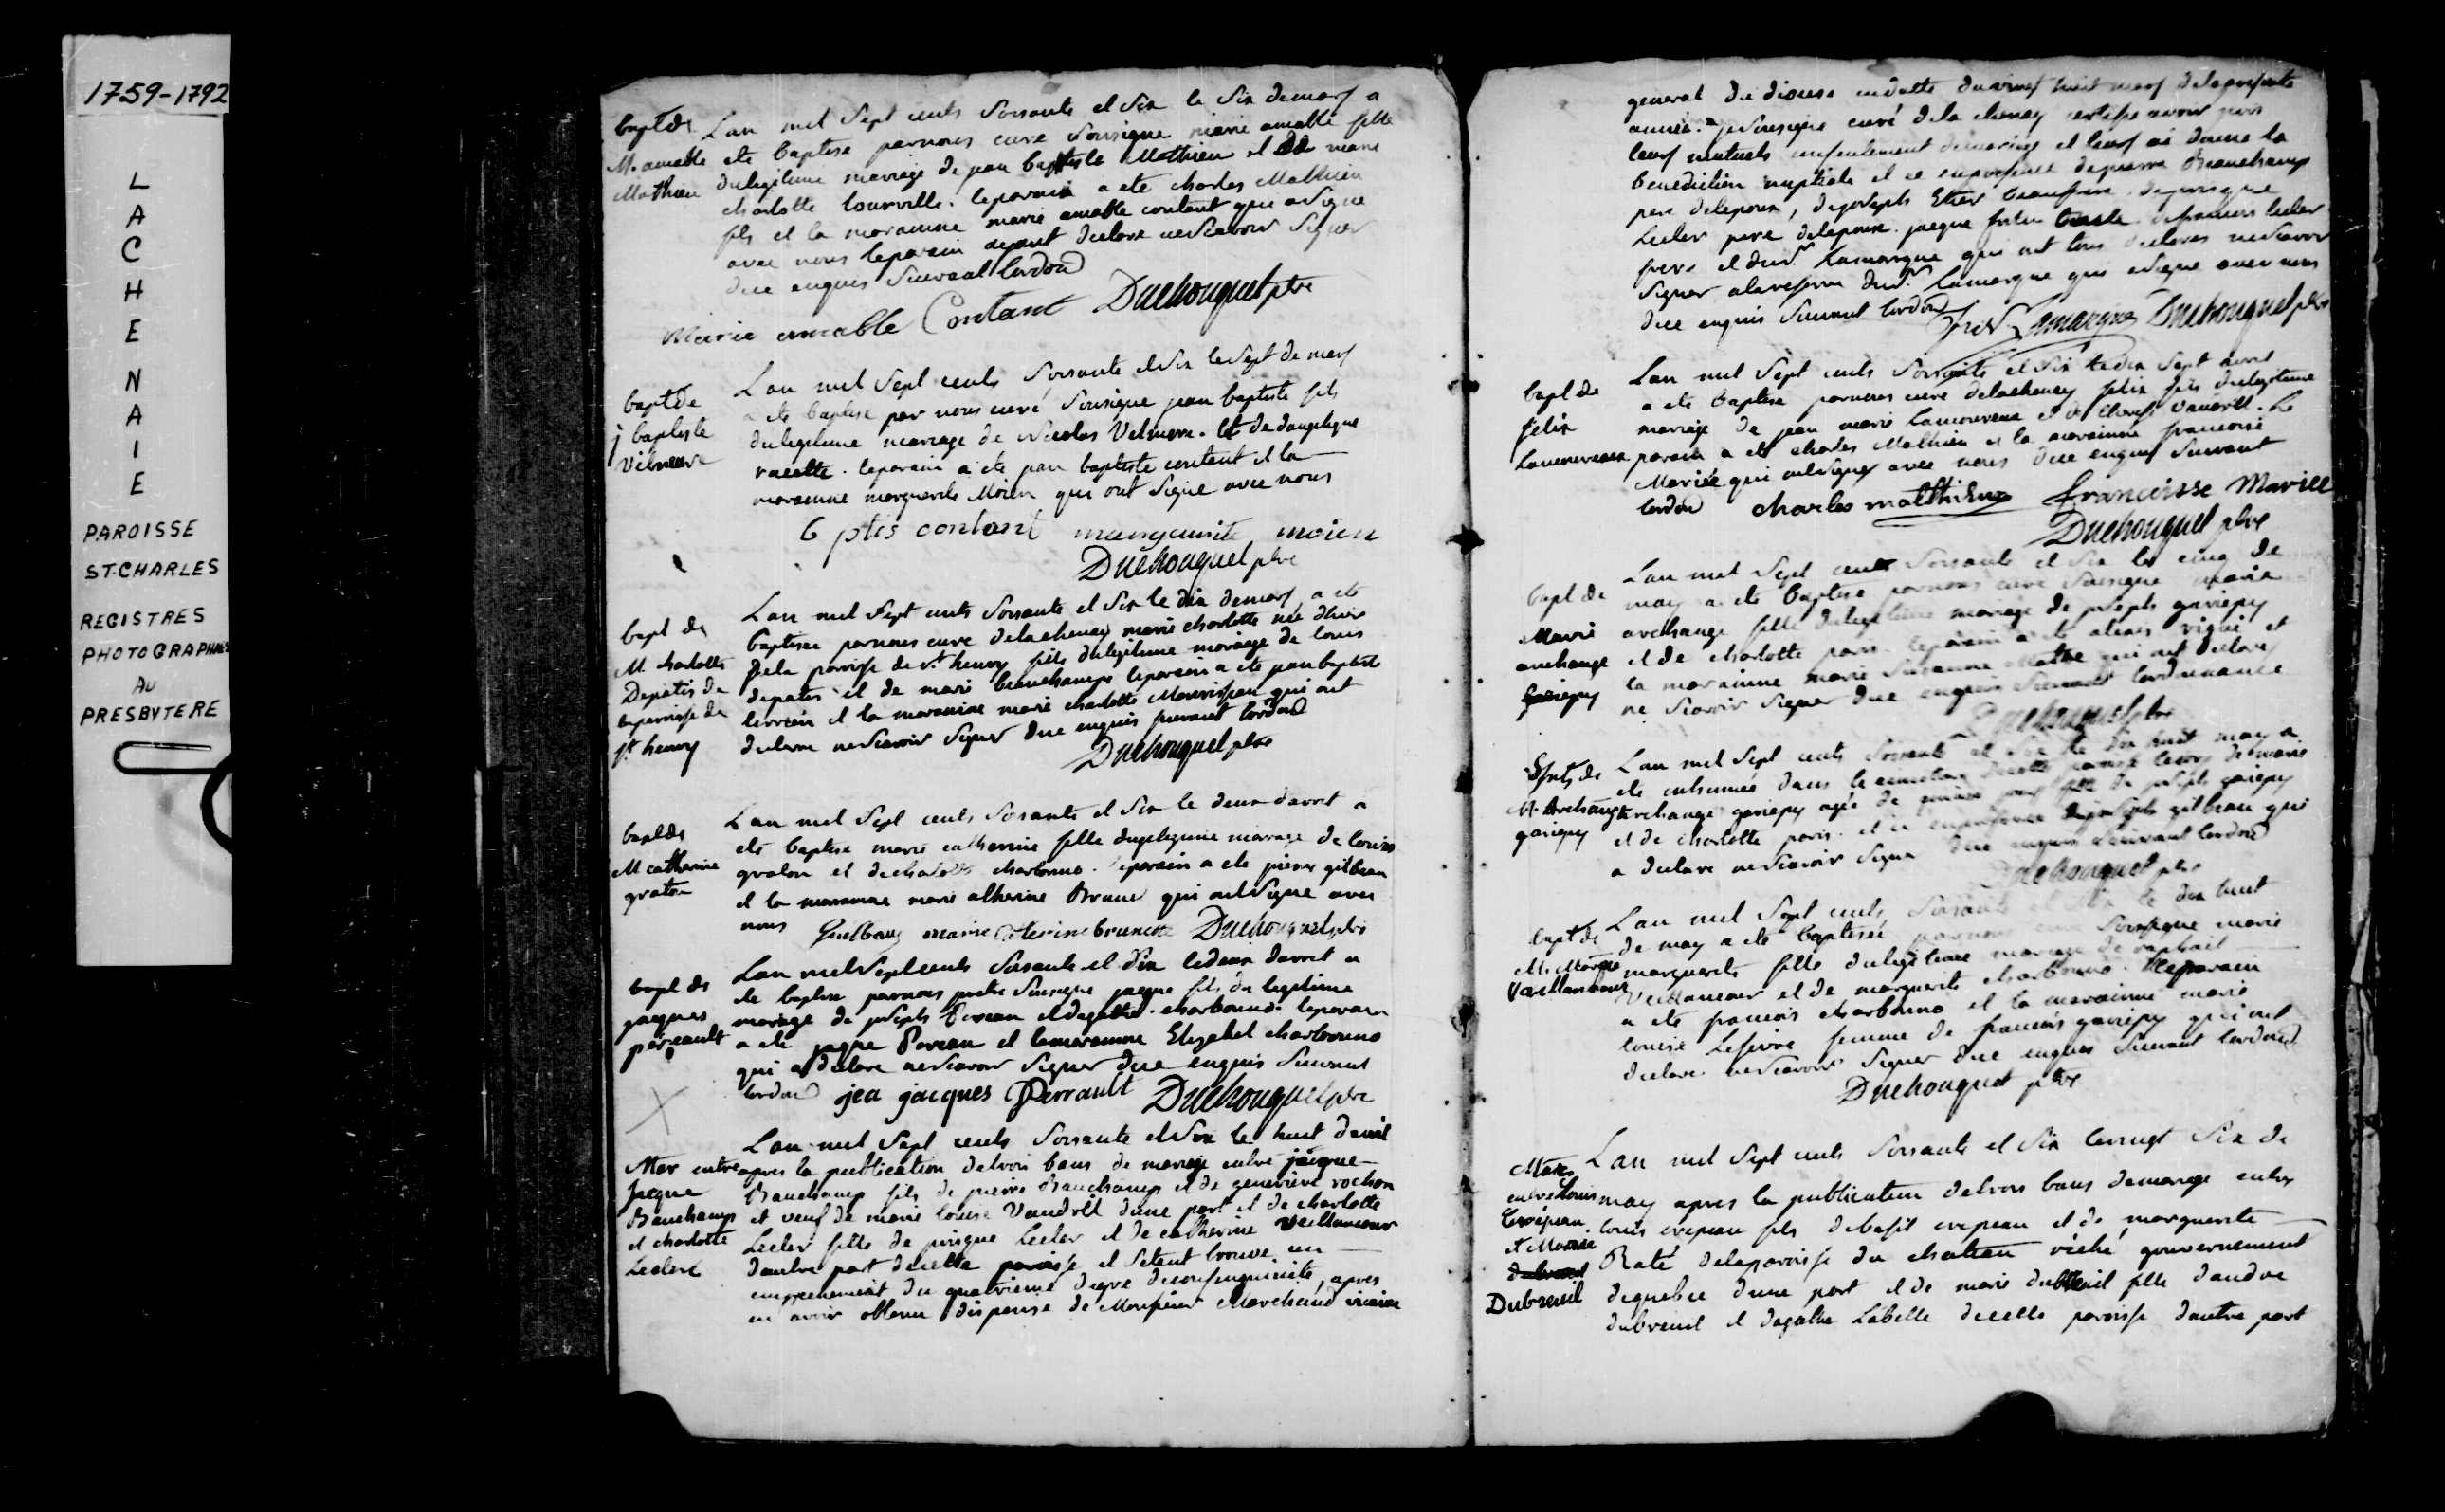 1759-1792
L
A
C
H
E
N
A
I
E
PAROISSE
ST.CHARLES
REGISTRES
PHOTOGRAPHIÉS
AU
PRESBYTERE
bapt de
M. amable
Mathieu
Lan mil Sept cents Soisante et Six le Six de mars a
ete baptise par nous curé Sousigne marie amable fille
du legitime mariage de jean baptiste Mathieu et de marie
charlotte tourville. le parain a ete charles Mathieu
fils et la maraine marie amable contant qui a Signe
avec nous le parain ayant declare ne Scavoir Signer
de ce enquis Suivant lordon
Marie amable Contant Duchouquet ptre
bapt de
j baptiste
Vilneuve
Lan mil Sept cents Soisante et Six le Sept de mars
a ete baptise par nous curé Sousigne jean baptiste fils
du legitime mariage de Nicolas Velneuve. et de dangelique
racette. le parain a ete jean baptiste contant et la
maraine marguerite Moien qui ont Signe avec nous
b ptis contant marguerite moien
Duchouquet ptre
bapt de
M. charlotte
Depatis de
la paroisse de
st henry
Lan mil Sept cents Soisante et Six le dix de mars a ete
baptisee par nous cure de lachenay marie charlotte née dhier
de la paroisse de st henry fille du legitime mariage de louis
depatis et de marie beauchamps le parain a ete jean baptist
terrien et la maraine marie charlotte qui ont
declare ne Scavoir Signer de ce enquis suivant lordon
Duchouquet ptre
bapt de
M catherine
graton
Lan mil Sept cents Soisante et Six le deux davril a
ete baptise marie catherine fille du legitime mariage de louis
graton et de charlotte charbonno. le parain a ete pierre gilbeau
et la maraine marie catherine Brunet qui ont Signe avec
nous Guilbaux marie Caterine brunette Duchouquet ptre
bapt de
jacques
pérault
Lan mil Sept cents Soisante et Six le deux davril a
ete baptise par nous pretre Sousigne jacque fils du legitime
mariage de joseph Pereau et dagathe charbonno. le parain
a ete jaque Pereau et la maraine Elizabet charbonno
qui a declare ne Scavoir Signer de ce enquis Suivant
lordon jea jacques Perrault Duchouquet ptre
Mar entre
Jacque
Bauchamp
et charlotte
Leclerc
Lan mil Sept cents Soisante et Six le huit davril
apres la publication de trois bans de mariage entre jacque
Bauchamp fils de pierre Bauchamp et de genevieve rochon
et veuf de marie louise Vaudril dune part et de charlotte
Lecler fille de Lecler et de catherine Veillancour
dautre part de cette paroisse et Setant trouve un
empechement du quatrieme degre de consenguinite, apres
en avoir obtenu dispense de Monsieur Marchand vicaire
general du diocese en datte du vingt huit mars de la presente
année. je Sousigne curé de la chenay certifie avoir pris
leurs mutuels consentement de mariage et leurs ai donne la
benediction nuptiale et ce en presence de pierre Beauchamp
pere de lepoux, de joseph Etier beaufrere
Lecler pere de lepouse. jacque fortin de francois lecler
frere et du sr Lamarque qui ont tous declares ne Scavoir
Signer a la reserve du sr Lamarque qui a Signe avec nous
de ce enquis Suivant lordon
Lamarque Duchouquet ptre
bapt de
félix
Lamoureaux
Lan mil Sept cents Soisante et Six le dix Sept avril
a ete baptise par nous cure de lachenay felix fils du legitime
mariage de jean marie Lamoureux et de Vaudril. Le
parain a ete charles Mathieu et la maraine francoise
Mariée qui ont Signes avec nous de ce enquis Suivant
lordon charles matthieu francoisse Mariee
Duchouquet ptre
bapt de
Marie
archange
gariepy
Lan mil Sept cent Soisante et Six le cinq de
may a ete baptise par nous cure Sousigne marie
archange fille du legitime mariage de joseph gariepy
et de charlotte paris. le parain a ete et
la maraine marie Suzanne Mathe qui ont declare
ne Scavoir Signer de ce enquis Suivant lordonnance
Duchouquet ptre
de
M. Archange
gariepy
Lan mil Sept cents Soisante et Six le dix huit may a
ete inhumée dans le cimetiere de cette paroisse le corps de marie
archange gariepy agée de jours fille de joseph gariepy
et de charlotte paris. et ce en presence de joseph gilbeau qui
a declare ne Scavoir Signer de ce enquis Suivant lordon
Duchouquet ptre
bapt de
M. Margte
Vaillancour
Lan mil Sept cents Soisante et Six le dix huit
de may a ete baptisée par nous cure Sousigne marie
marguerite fille du legitime mariage de raphail
Veillancour et de marguerite charbonno. Le parain
a ete francois charbonno et la maraine marie
louise Lefevre femme de francois gariepy qui ont
declare ne Scavoir Signer de ce enquis Suivant lordon
Duchouquet ptre
Mar
entre Louis
Crépeau
et Marie
Dubreuil
Lan mil Sept cents Soisante et Six le vingt Six de
may apres la publication de trois bans de mariage entre
louis crepeau fils de basil crepeau et de marguerite
Raté de la paroisse du chateau riché gouvernement
de quebec dune part et de marie dubreuil fille dandre
dubreuil et dagathe Labelle de cette paroisse dautre part